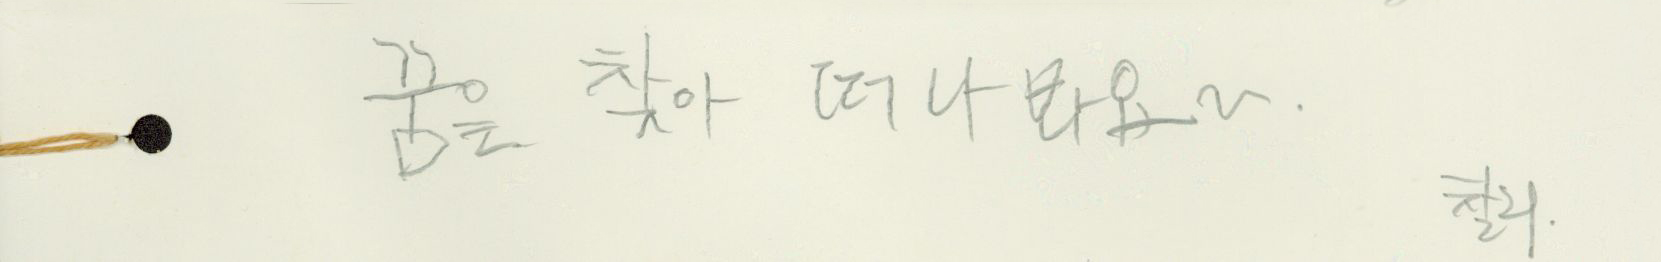 꿈을 찾아 떠나봐요~.
칠리.